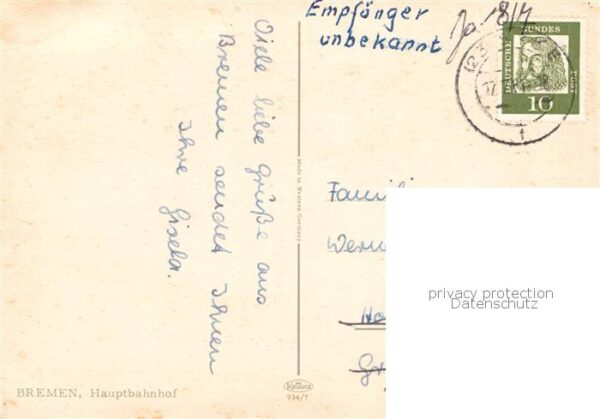 Empfänger
unbekannt
Ja 18/4
DEUTSCHE BUNDES POST
10
Viele liebe Grüße aus
Bremen sendet Ihnen
Ihre Gisela.
Made in Western Germany
Famili
Wern
privacy protection
Datenschutz
BREMEN, Hauptbahnhof
Krüger
934/7